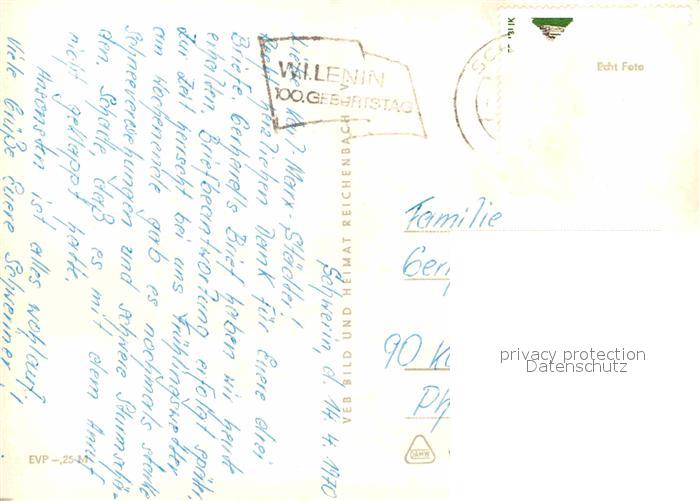 Schwerin, d. 14.4.1970
Liebe Karl-Marx-Städter!
Recht herzlichen Dank für Eure drei
Briefe. Gerhards Brief haben wir heute
erhalten. Briefbeantwortung erfolgt später.
Zur Zeit herrscht bei uns Frühlingswetter
am Wochenende gab es nochmals starke
Schneeverwehungen und schwere Sturmschä-
den. Schade, daß es mit dem Anruf
nicht geklappt hatte.
Ansonsten ist alles wohlauf!
Viele Grüße Eure Schweriner!
EVP –,25 M
VEB BILD UND HEIMAT REICHENBACH V
W.I. LENIN
100. GEBURTSTAG
Echt Foto
Familie
90 K
Ph
DAMW
privacy protection
Datenschutz